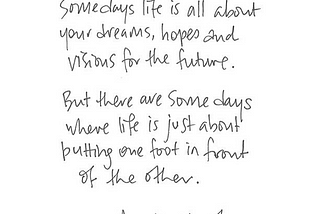 Somedays life is all about
your dreams, hopes and
visions for the future.
But there are some days
where life is just about
putting one foot in front
of the other.